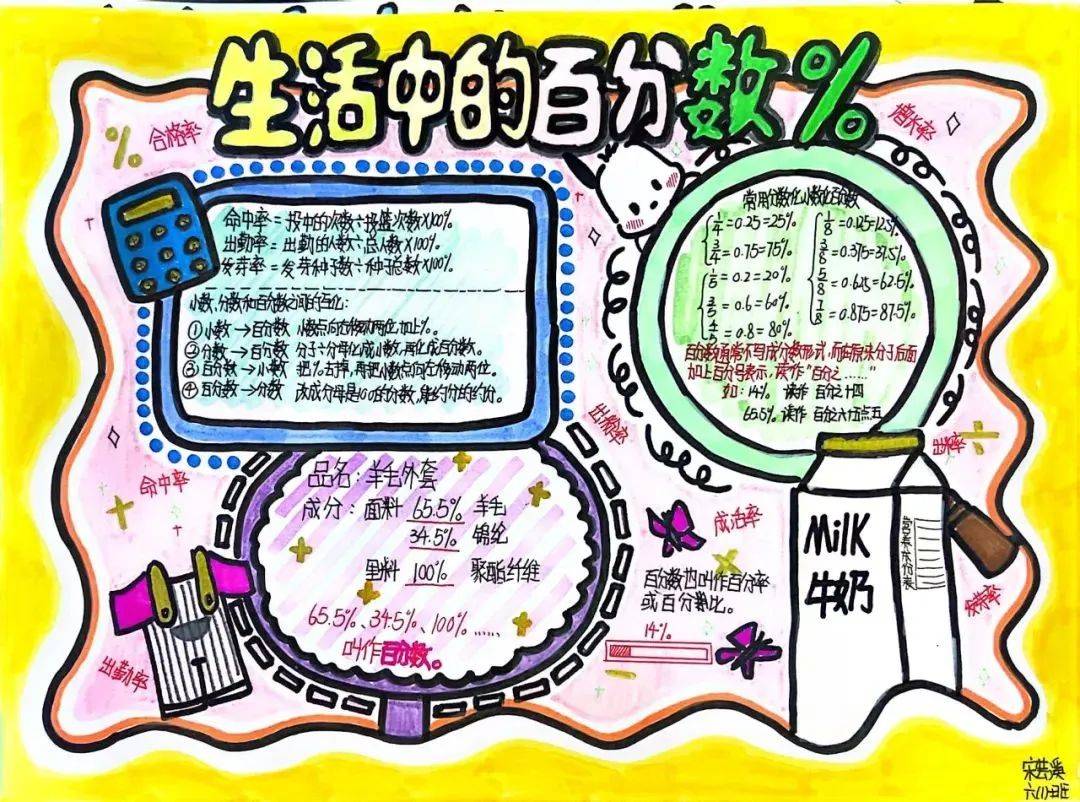 生活中的百分数%
%
合格率
增长率
命中率=投中的次数÷投篮次数×100%
出勤率=出勤的人数÷总人数×100%
发芽率=发芽种子数÷种子总数×100%
小数、分数和百分数之间的互化:
①小数→百分数 小数点向右移动两位,加上%。
②分数→百分数 分子÷分母化成小数,再化成百分数。
③百分数→小数 把%去掉,再把小数点向左移动两位。
④百分数→分数 改成分母是100的分数,能约分的约分。
常用分数化小数化百分数
1/4=0.25=25%
3/4=0.75=75%
1/5=0.2=20%
3/5=0.6=60%
4/5=0.8=80%
1/8=0.125=12.5%
3/8=0.375=37.5%
5/8=0.625=62.5%
7/8=0.875=87.5%
百分数通常不写成分数形式,而在原来分子后面
加上百分号表示,读作“百分之……”
如:14% 读作 百分之十四
65.5% 读作 百分之六十五点五
出粉率
出米率
命中率
品名:羊毛外套
成分:面料 65.5% 羊毛
34.5% 锦纶
里料 100% 聚酯纤维
65.5%、34.5%、100%……
叫作百分数。
出勤率
成活率
百分数也叫作百分率
或百分比。
14%
MilK
牛奶
营养成份表
发芽率
六(1)班